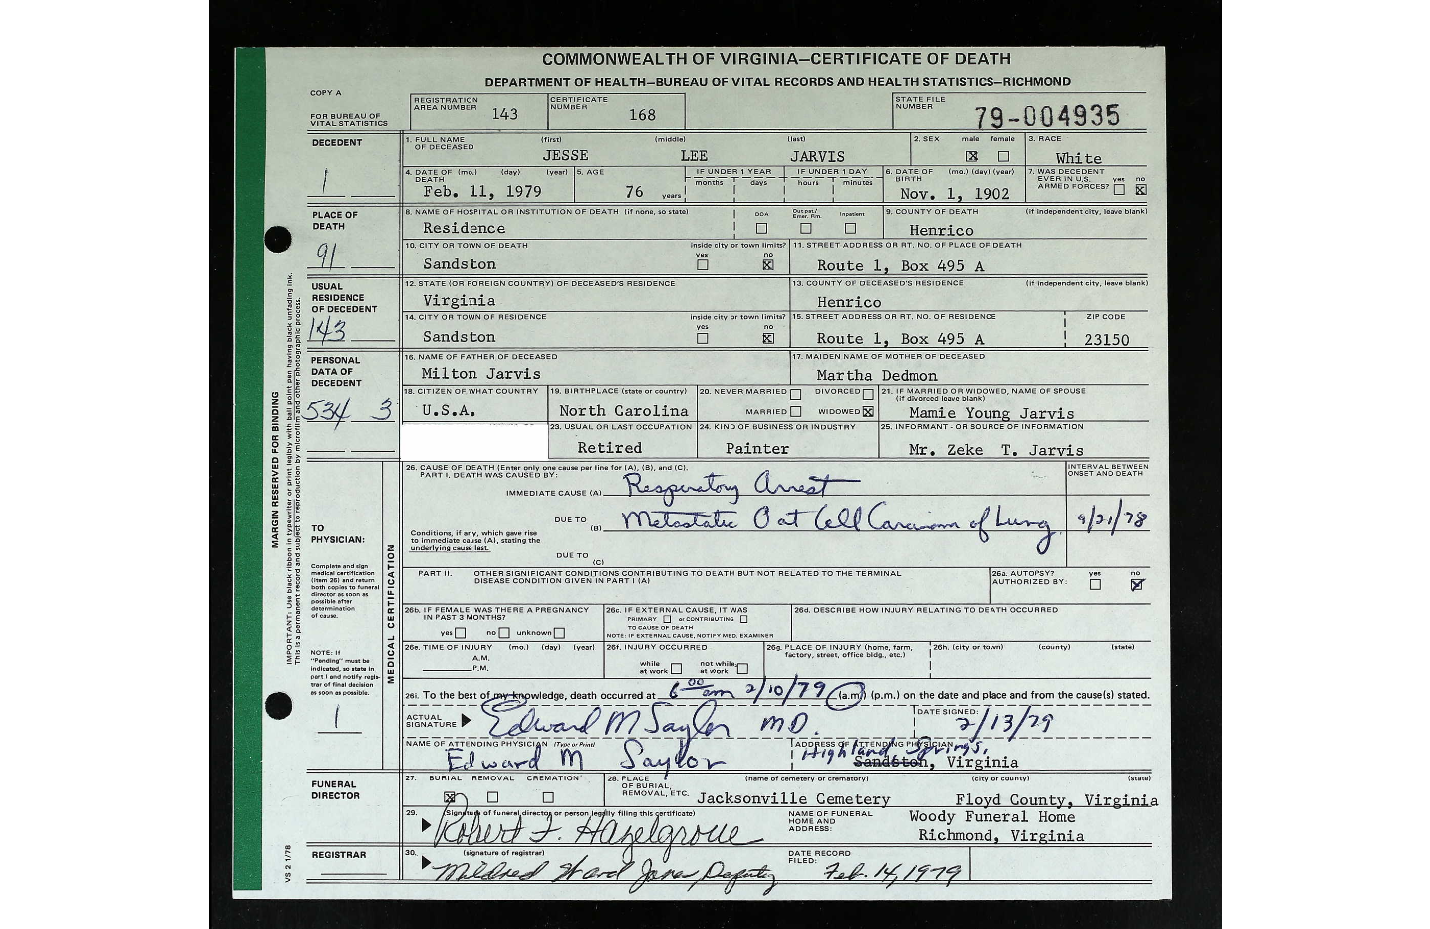 COMMONWEALTH OF VIRGINIA—CERTIFICATE OF DEATH
DEPARTMENT OF HEALTH—BUREAU OF VITAL RECORDS AND HEALTH STATISTICS—RICHMOND
COPY A
FOR BUREAU OF VITAL STATISTICS
REGISTRATION AREA NUMBER 143
CERTIFICATE NUMBER 168
STATE FILE NUMBER 79-004935
DECEDENT
1
1. FULL NAME OF DECEASED (first) (middle) (last)
JESSE LEE JARVIS
2. SEX male female
3. RACE
White
4. DATE OF DEATH (mo.) (day) (year)
Feb. 11, 1979
5. AGE
76 years
IF UNDER 1 YEAR
months days
IF UNDER 1 DAY
hours minutes
6. DATE OF BIRTH (mo.) (day) (year)
Nov. 1, 1902
7. WAS DECEDENT EVER IN U.S. ARMED FORCES? yes no
PLACE OF DEATH
91
8. NAME OF HOSPITAL OR INSTITUTION OF DEATH (if none, so state)
Residence
DOA Out pat./Emer. Rm. Inpatient
9. COUNTY OF DEATH (if independent city, leave blank)
Henrico
10. CITY OR TOWN OF DEATH
Sandston
inside city or town limits? yes no
11. STREET ADDRESS OR RT. NO. OF PLACE OF DEATH
Route 1, Box 495 A
USUAL RESIDENCE OF DECEDENT
143
12. STATE (OR FOREIGN COUNTRY) OF DECEASED'S RESIDENCE
Virginia
13. COUNTY OF DECEASED'S RESIDENCE (if independent city, leave blank)
Henrico
14. CITY OR TOWN OF RESIDENCE
Sandston
inside city or town limits? yes no
15. STREET ADDRESS OR RT. NO. OF RESIDENCE
Route 1, Box 495 A
ZIP CODE
23150
PERSONAL DATA OF DECEDENT
534 3
16. NAME OF FATHER OF DECEASED
Milton Jarvis
17. MAIDEN NAME OF MOTHER OF DECEASED
Martha Dedmon
18. CITIZEN OF WHAT COUNTRY
U.S.A.
19. BIRTHPLACE (state or country)
North Carolina
20. NEVER MARRIED DIVORCED
MARRIED WIDOWED
21. IF MARRIED OR WIDOWED, NAME OF SPOUSE (if divorced leave blank)
Mamie Young Jarvis
23. USUAL OR LAST OCCUPATION
Retired
24. KIND OF BUSINESS OR INDUSTRY
Painter
25. INFORMANT - OR SOURCE OF INFORMATION
Mr. Zeke T. Jarvis
MARGIN RESERVED FOR BINDING
IMPORTANT: Use black ribbon in typewriter or print legibly with ball point pen having black unfading ink.
This is a permanent record and subject to reproduction by microfilm and other photographic process.
TO PHYSICIAN:
Complete and sign medical certification (item 26) and return both copies to funeral director as soon as possible after determination of cause.
NOTE: If "Pending" must be indicated, so state in part I and notify registrar of final decision as soon as possible.
1
MEDICAL CERTIFICATION
26. CAUSE OF DEATH (Enter only one cause per line for (A), (B), and (C).
PART I. DEATH WAS CAUSED BY:
INTERVAL BETWEEN ONSET AND DEATH
IMMEDIATE CAUSE (A) Respiratory Arrest
DUE TO (B) Metastatic Oat Cell Carcinoma of Lung 9/21/78
Conditions, if any, which gave rise to immediate cause (A), stating the underlying cause last.
DUE TO (C)
PART II. OTHER SIGNIFICANT CONDITIONS CONTRIBUTING TO DEATH BUT NOT RELATED TO THE TERMINAL DISEASE CONDITION GIVEN IN PART I (A)
26a. AUTOPSY? AUTHORIZED BY: yes no
26b. IF FEMALE WAS THERE A PREGNANCY IN PAST 3 MONTHS?
yes no unknown
26c. IF EXTERNAL CAUSE, IT WAS
PRIMARY or CONTRIBUTING
TO CAUSE OF DEATH
NOTE: IF EXTERNAL CAUSE, NOTIFY MED. EXAMINER
26d. DESCRIBE HOW INJURY RELATING TO DEATH OCCURRED
26e. TIME OF INJURY (mo.) (day) (year)
A.M.
P.M.
26f. INJURY OCCURRED
while at work not while at work
26g. PLACE OF INJURY (home, farm, factory, street, office bldg., etc.)
26h. (city or town) (county) (state)
26i. To the best of my knowledge, death occurred at 6 00 am 2/10/79 (a.m.) (p.m.) on the date and place and from the cause(s) stated.
ACTUAL SIGNATURE Edward M Saylor MD.
DATE SIGNED: 2/13/79
NAME OF ATTENDING PHYSICIAN (Type or Print)
Edward M Saylor
ADDRESS OF ATTENDING PHYSICIAN
Highland Springs,
Sandston, Virginia
FUNERAL DIRECTOR
27. BURIAL REMOVAL CREMATION
28. PLACE OF BURIAL, REMOVAL, ETC. (name of cemetery or crematory) (city or county) (state)
Jacksonville Cemetery Floyd County, Virginia
29. (Signature of funeral director or person legally filing this certificate)
Robert F. Hazelgrove
NAME OF FUNERAL HOME AND ADDRESS:
Woody Funeral Home
Richmond, Virginia
REGISTRAR
30. (signature of registrar)
Mildred Ward Jones Deputy
DATE RECORD FILED:
Feb. 14, 1979
VS 2 1/78